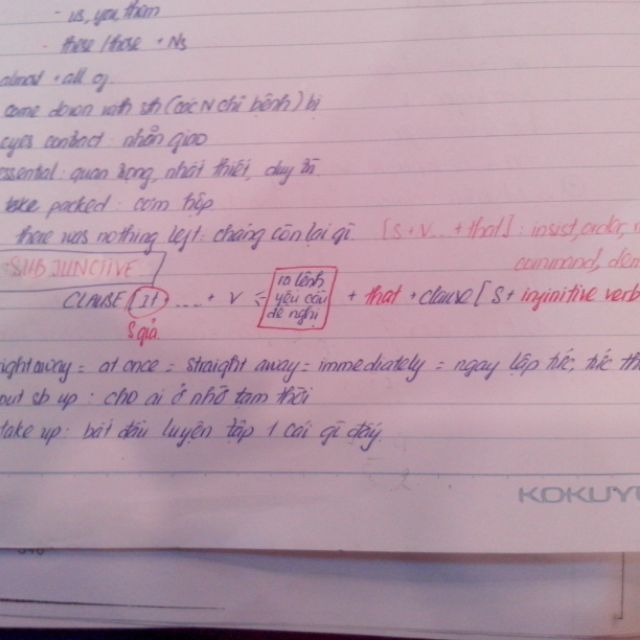 - us, you, them
- these / those + Ns
almost + all of
come down with sth (các N chỉ bệnh) bị
eyes contact: nhãn giao
essential: quan trọng, nhất thiết, duy trì
take packed: cơm tiệp
there was nothing left: chẳng còn lại gì. [S + V... + that]: insist, order,
SUBJUNCTIVE: command,
CLAUSE [It + .... + V ra lệnh yêu cầu đề nghị + that + clause [S + infinitive verb
S giả
right away = at once = straight away = immediately = ngay lập tức, tức
put sb up : cho ai ở nhờ tạm thời
take up: bắt đầu luyện tập 1 cái gì đấy
KOKUYO